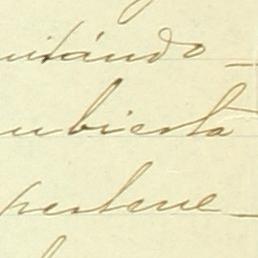 uitándo-
ubierta
pertene-